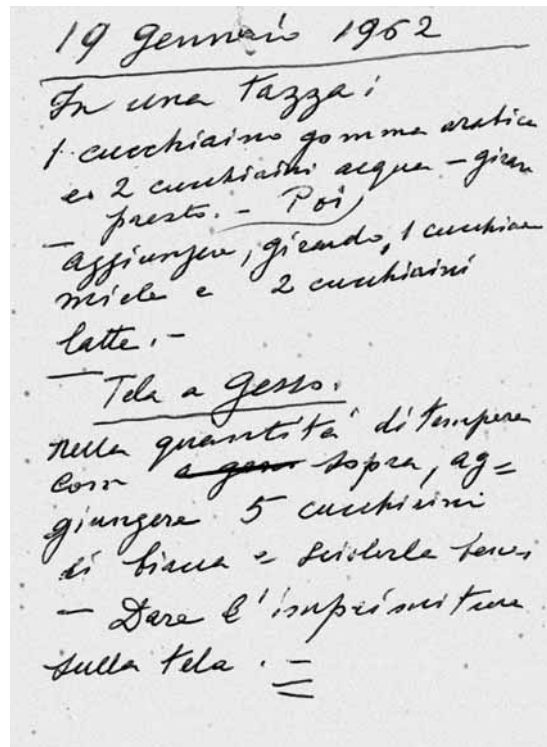 19 Gennaio 1962
In una tazza:
1 cucchiaino gomma arabica
e 2 cucchiaini acqua - girare
presto. - Poi
- aggiungere, girando, 1 cucchiaino
miele e 2 cucchiaini
latte. -
- Tela a gesso.
nella quantità di tempera
com sopra, ag=
giungere 5 cucchiaini
di bianca e bene
- Dare l'imprimitura
sulla tela. -